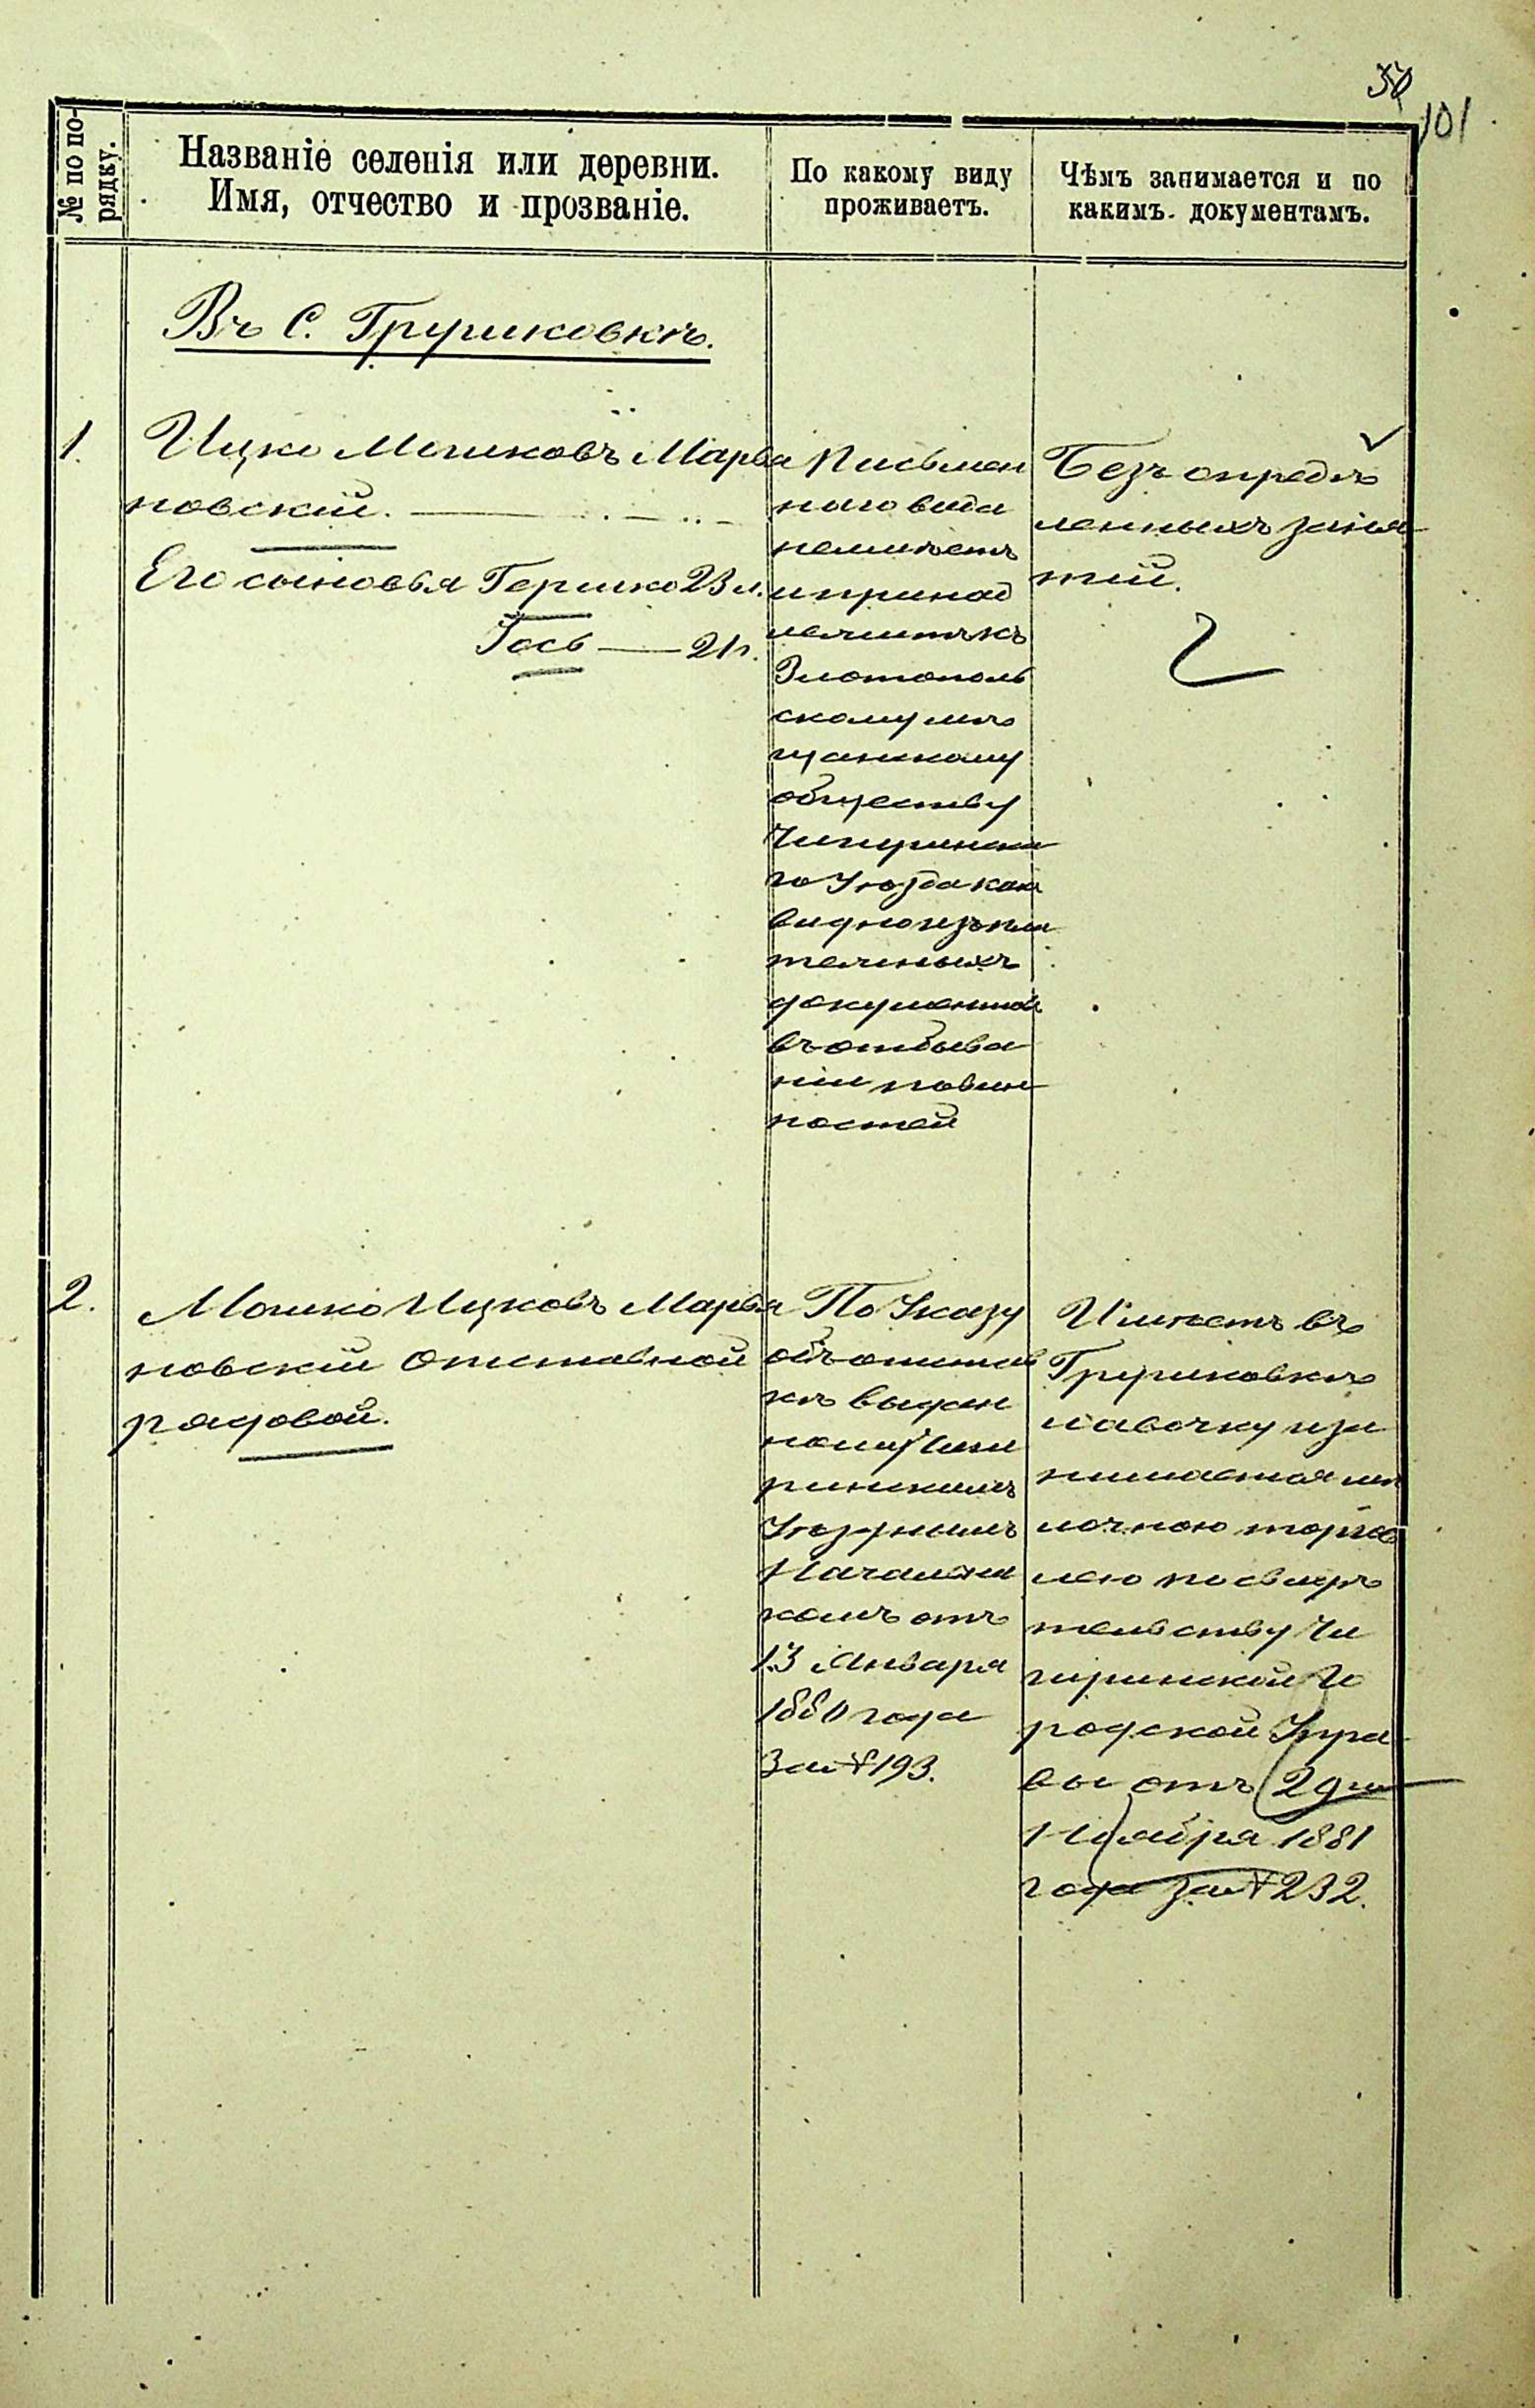 50
101
№ по по-
рядку.
Названіе селенія или деревни.
Имя, отчество и прозваніе.
По какому виду
проживаетъ.
Чѣмъ занимается и по
какимъ документамъ.
Въ С. Грушковкѣ.
1.
Ицко Мошковъ Марья
новскій.
Его сыновья Гершко 23 л.
Іось — 21 г.
Письмен
наго вида
неимѣетъ
и принад
лежитъ къ
Златополь
скому мѣ
щанскому
обществу
Чигиринска
го Уѣзда какъ
видно изъ пла
тежныхъ
документов
въ отбыва
ніи повин
ностей
Безъ опредѣ
ленныхъ заня
тій.
2.
Мошко Ицковъ Марья
новскій Отставной
рядовой.
По Указу
объ отстав
кѣ выдан
ному Чиги
ринскимъ
Уѣзднымъ
Начальни
комъ отъ
13 Января
1880 года
За № 193.
Имѣетъ въ
Грушковкѣ
лавочку и за
нимается ме
лочною торгов
лею по свидѣ
тельству Чи
гиринской Го
родской Упра
вы отъ 29 го
Ноября 1881
года за № 232.